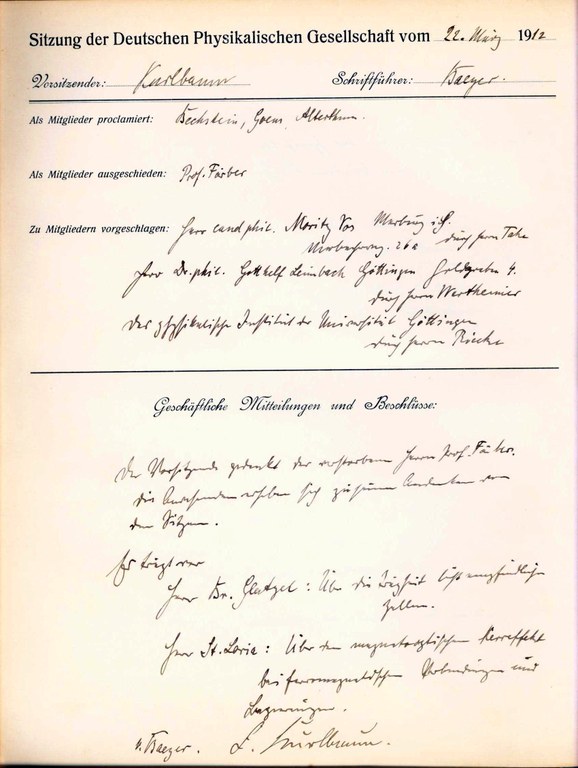 Sitzung der Deutschen Physikalischen Gesellschaft vom 22. März 1912
Vorsitzender: Kurlbaum Schriftführer: Baeyer.
Als Mitglieder proclamiert: Bechstein, Goens, Alterthum.
Als Mitglieder ausgeschieden: Prof. Färber
Zu Mitgliedern vorgeschlagen: Herr cand phil. Moritz Vos Marburg
durch Herrn
Herr Dr. phil. Gotthelf Leimbach Göttingen Goldgraben 4.
durch Herrn Wertheimer
Das physikalische Institut der Universität Göttingen
durch Herrn Riecke
Geschäftliche Mitteilungen und Beschlüsse:
Der Vorsitzende gedenkt des verstorbenen Herrn Prof. Färber.
Die Anwesenden erheben sich zu seinem Andenken von
den Sitzen.
Es trägt vor
Herr Br. Glatzel: Über die Trägheit lichtempfindlicher
Zellen.
Herr St. Loria: Über den magnetooptischen Kerreffekt
bei ferromagnetischen Verbindungen und
Legierungen.
v. Baeyer. F. Kurlbaum.